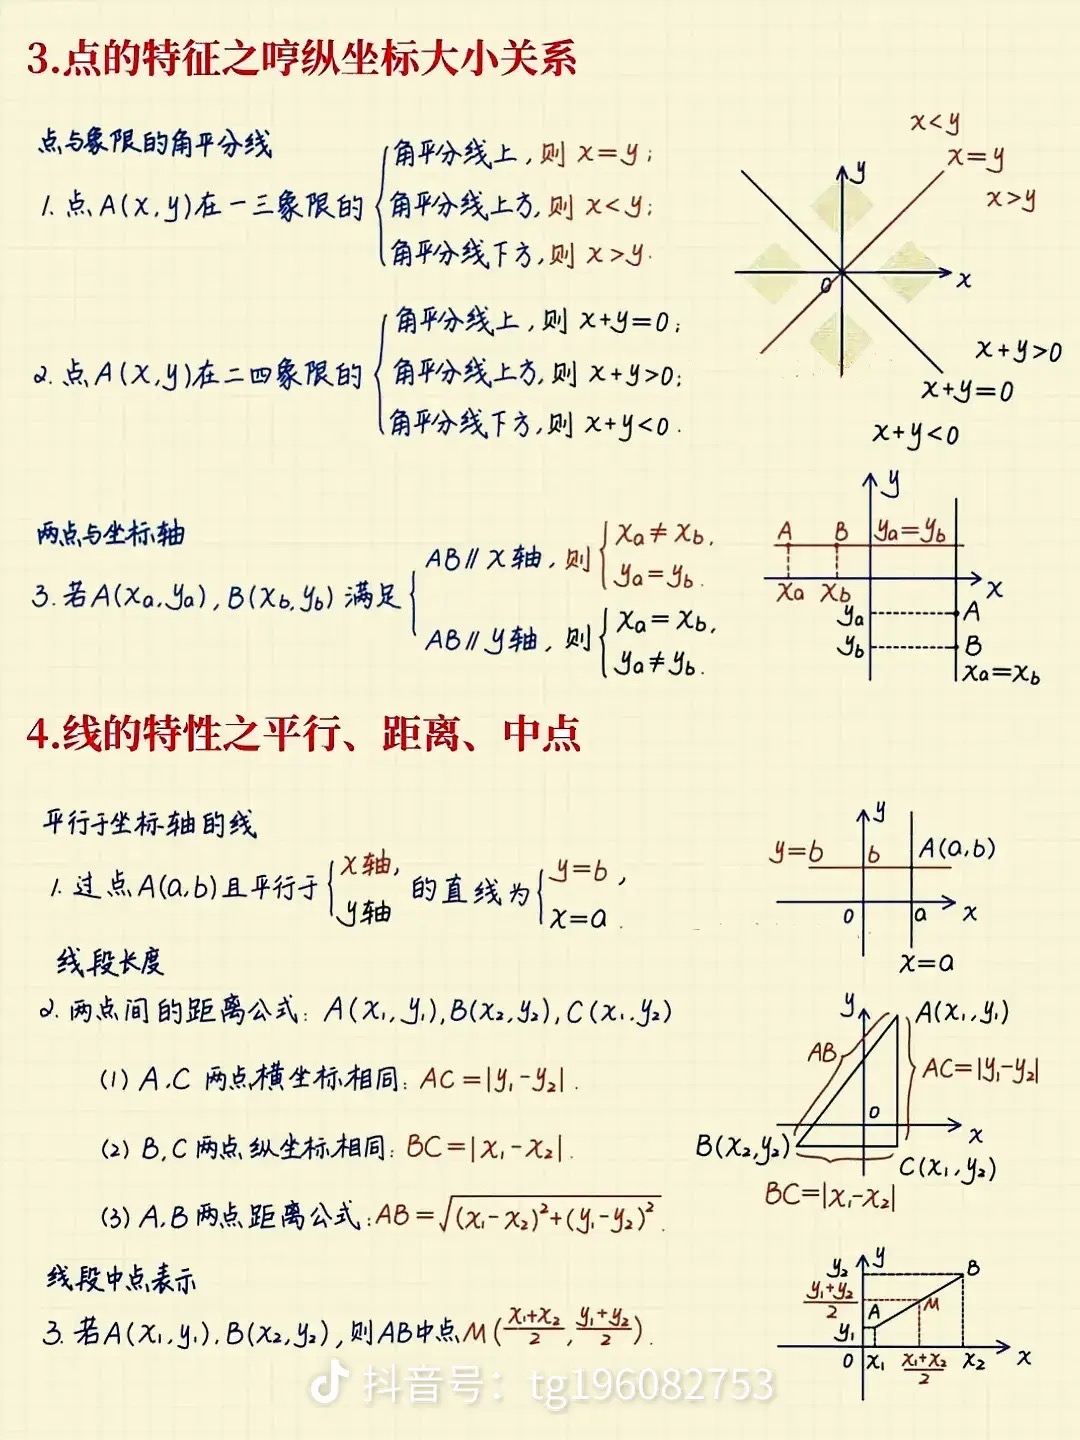 3.点的特征之哼纵坐标大小关系
点与象限的角平分线
1. 点A(x,y)在一三象限的
角平分线上,则 x=y;
角平分线上方,则 x<y;
角平分线下方,则 x>y.
x<y
x=y
x>y
y
x
0
2. 点A(x,y)在二四象限的
角平分线上,则 x+y=0;
角平分线上方,则 x+y>0;
角平分线下方,则 x+y<0.
x+y>0
x+y=0
x+y<0
两点与坐标轴
3. 若A(xa,ya),B(xb,yb)满足
AB∥x轴,则
xa≠xb,
ya=yb.
AB∥y轴,则
xa=xb,
ya≠yb.
y
A B ya=yb
x
xa xb
ya A
yb B
xa=xb
4.线的特性之平行、距离、中点
平行于坐标轴的线
1. 过点A(a,b)且平行于
x轴,
y轴
的直线为
y=b,
x=a.
y
y=b b A(a,b)
0 a x
x=a
线段长度
2. 两点间的距离公式: A(x₁,y₁),B(x₂,y₂),C(x₁.y₂)
(1) A.C 两点横坐标相同: AC=|y₁-y₂|.
(2) B,C两点纵坐标相同: BC=|x₁-x₂|.
(3) A.B两点距离公式:AB=√(x₁-x₂)²+(y₁-y₂)².
y A(x₁,y₁)
AB
AC=|y₁-y₂|
0
x
B(x₂,y₂)
C(x₁,y₂)
BC=|x₁-x₂|
线段中点表示
3. 若A(x₁,y₁).B(x₂,y₂),则AB中点M(x₁+x₂/2,y₁+y₂/2).
y
y₂ B
y₁+y₂/2 A M
y₁
0 x₁ x₁+x₂/2 x₂ x
抖音号：tg196082753